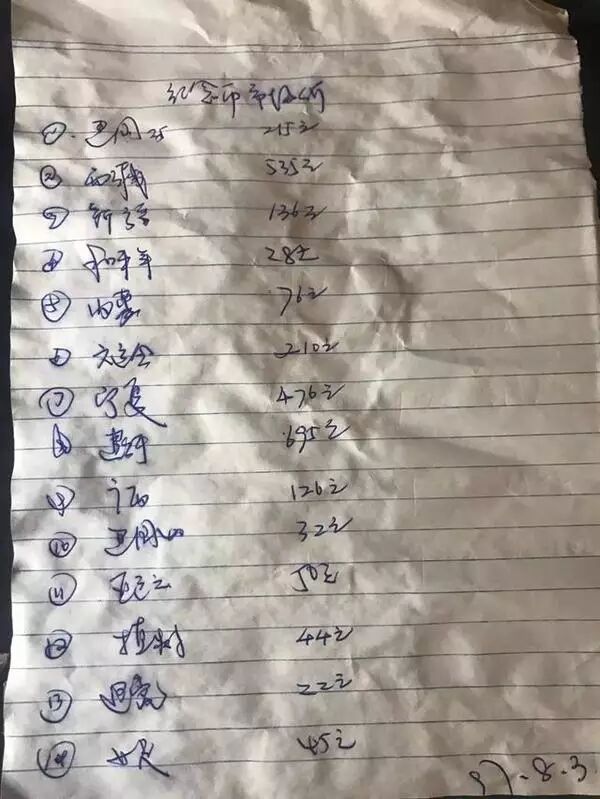 纪念币市场价
① 建国35 215元
② 西藏 535元
③ 新疆 136元
④ 和平年 28元
⑤ 内蒙 76元
⑥ 六运会 210元
⑦ 宁夏 476元
⑧ 建行 695元
⑨ 广西 126元
⑩ 建国40 32元
⑪ 亚运会 50元
⑫ 植树 44元
13 22元
⑭ 45元
97.8.3